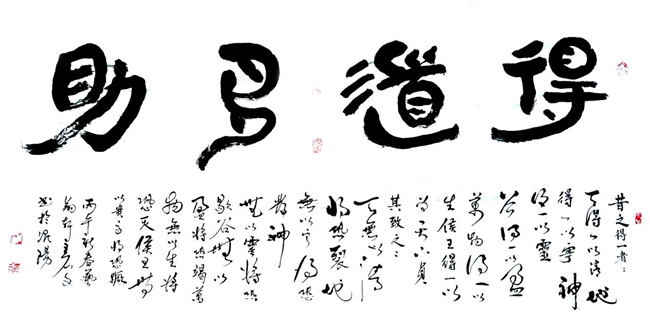 得道多助
昔之得一者：
天得一以清地
得一以寧神
得一以靈
谷得一以盈
萬物得一以
生侯王得一以
為天下貞
其致之：
天無以清
將恐裂地
無以寧將恐
發神
無以靈將恐
歇谷無以
盈將恐竭萬
物無以生將
恐滅侯王無
以貴高將恐蹶
丙午新春藝
書於瀋陽